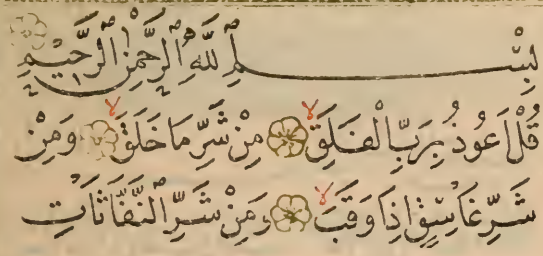 بِسْمِ اللّٰهِ الرَّحْمٰنِ الرَّحِيْمِ
قُلْ اَعُوْذُ بِرَبِّ الْفَلَقِ لا مِنْ شَرِّ مَا خَلَقَ لا وَمِنْ
شَرِّ غَاسِقٍ اِذَا وَقَبَ لا وَمِنْ شَرِّ النَّفَّاثَاتِ